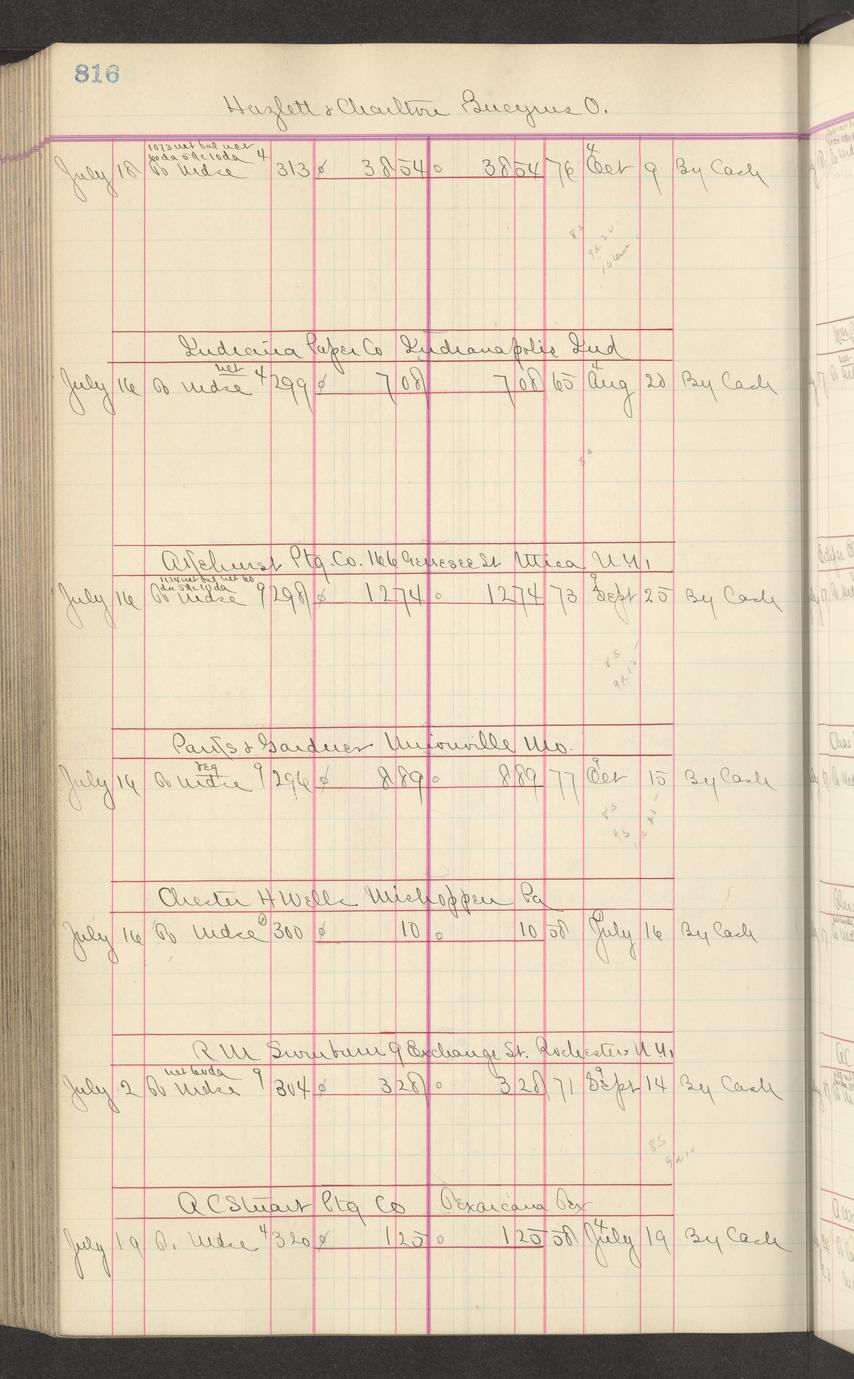 816
Hazlett & Charlton Bucyrus O.
1073 net bal net
60 da 5% 10 da
July 18 To Mdse 4 313 3854 3854 76 4 Oct 9 By Cash
85
9d 20
Indiana Paper Co Indianapolis Ind
net
July 16 To Mdse 4 299 708 708 65 4 Aug 20 By Cash
85
Ptg. Co. 166 Genesee St Utica N.Y.
1124 net bal net 60
da 5% 10 da
July 16 To Mdse 9 298 1274 1274 73 9 Sept 25 By Cash
85
& Gardner Unionville Mo.
reg
July 16 To Mdse 9 296 889 889 77 9 Oct 15 By Cash
85
Chester H Wells Mishoppen Pa
July 16 To Mdse 300 10 10 58 July 16 By Cash
R M Swinburn 9 Exchange St. Rochester N.Y.
net 60 da
July 2 To Mdse 9 304 328 328 71 9 Sept 14 By Cash
85
A C Stuart Ptg Co Texarcana Tex
July 19 To Mdse 4 320 125 125 58 4 July 19 By Cash